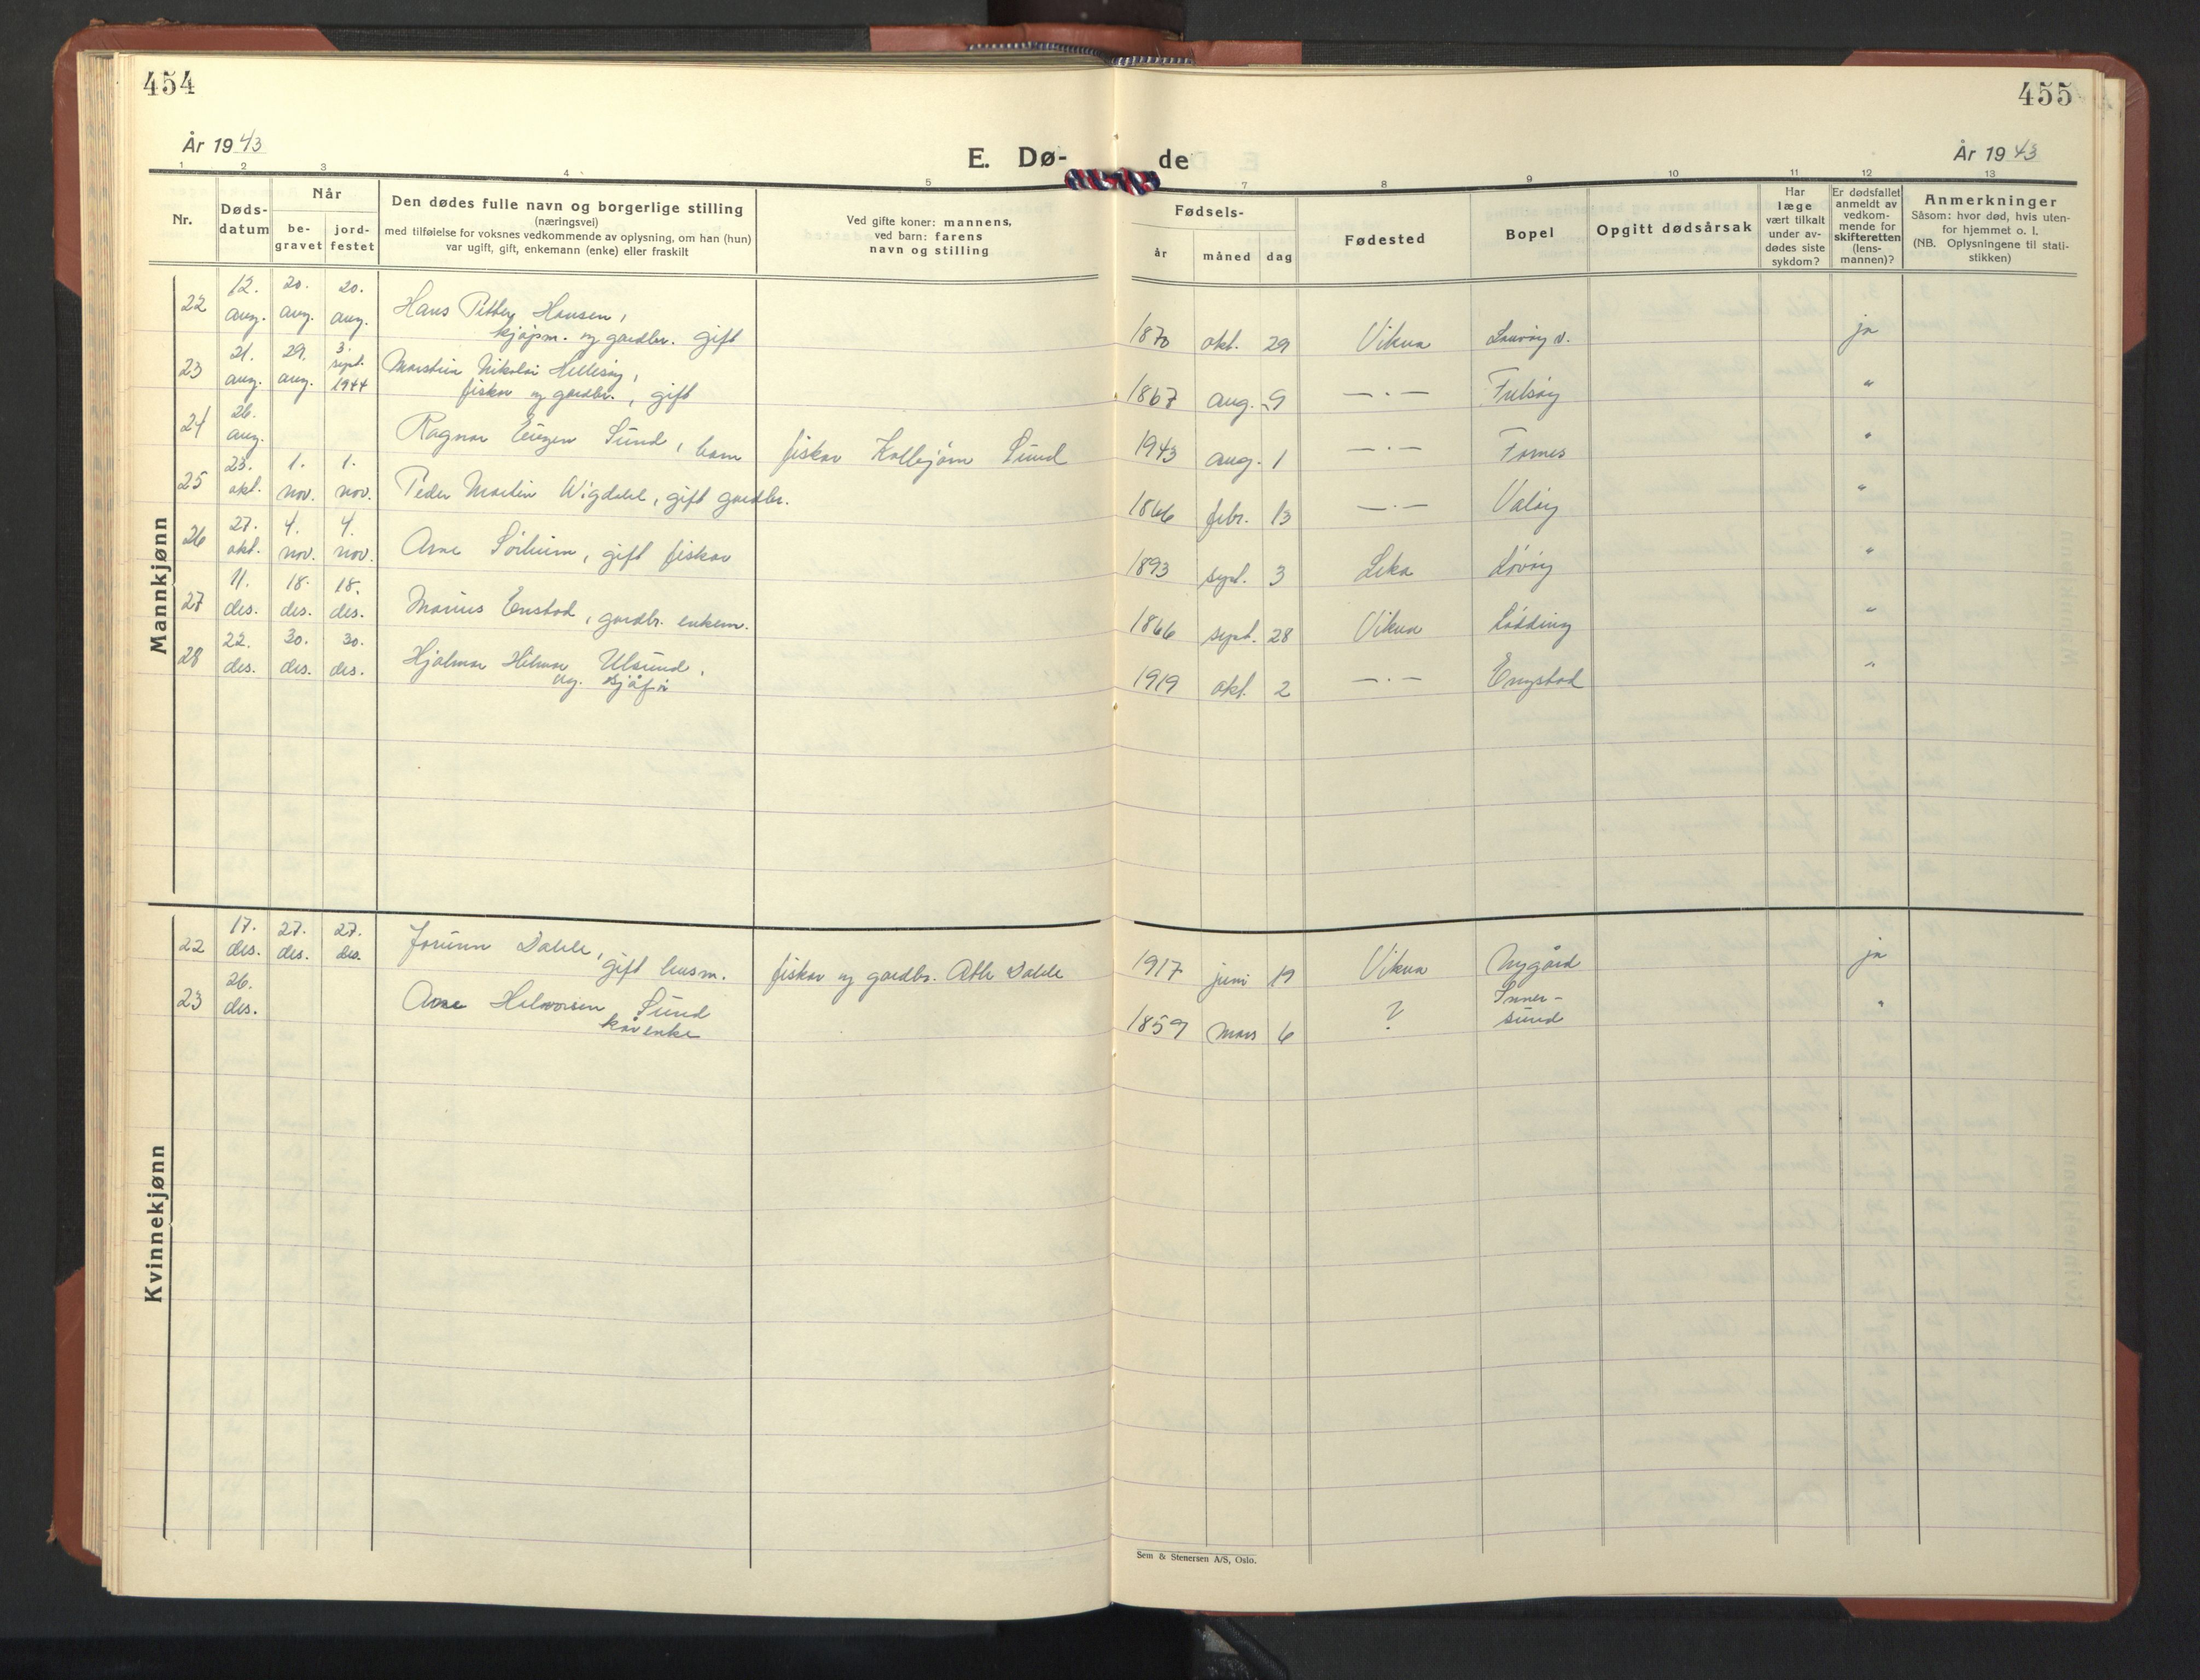 454
455
År 1943
E. Dø-
de
År 1943
1 2 3 4 5 7 8 9 10 11 12 13
Nr.
Døds-
datum
Når
be-
gravet
jord-
festet
Den dødes fulle navn og borgerlige stilling
(næringsvei)
med tilføielse for voksnes vedkommende av oplysning, om han (hun)
var ugift, gift, enkemann (enke) eller fraskilt
Ved gifte koner: mannens,
ved barn: farens
navn og stilling
Fødsels-
år
måned
dag
Fødested
Bopel
Opgitt dødsårsak
Har
læge
vært tilkalt
under av-
dødes siste
sykdom?
Er dødsfallet
anmeldt av
vedkom-
mende for
skifteretten
(lens-
mannen)?
Anmerkninger
Såsom: hvor død, hvis uten-
for hjemmet o. l.
(NB. Oplysningene til stati-
stikken)
Mannkjønn
22 12. aug. 20. aug. 20. aug. Hans Petter Hansen, 1870 okt. 29 Vikna Lauvøy v. ja
kjøpm. og gardbr. gift
23 21. aug. 29. aug. 3. sept. 1944 Nikolai 1867 aug. 9 — . —
fisker og gardbr., gift
24 26. aug. Ragnar Eugen Sund, barn fisker Kolbjørn Sund 1943 aug. 1 — . — Fornes "
25 23. okt. 1. nov. 1. nov. Peder Martin Wigdahl, gift gardbr. 1866 febr. 13 — . — Valøy "
26 27. okt. 4. nov. 4. nov. Arne Sørheim, gift fisker 1893 sept. 3 Leka Løvøy "
27 11. des. 18. des. 18. des. Marius Enstad, gardbr. enkem. 1866 sept. 28 Vikna Lødding "
28 22. des. 30. des. 30. des. Hjalmar Hilmar Ulsund, 1919 okt. 2 — . — Engstad "
ug. sjåfør
Kvinnekjønn
22 17. des. 27. des. 27. des. Jorunn Dahle, gift husm. fisker og gardbr. Atle Dahle 1917 juni 19 Vikna Nygård ja
23 26. des. Halvorsen Sund 1859 mars 6 ? Inner-
sund "
kårenke
Sem & Stenersen A/S, Oslo.